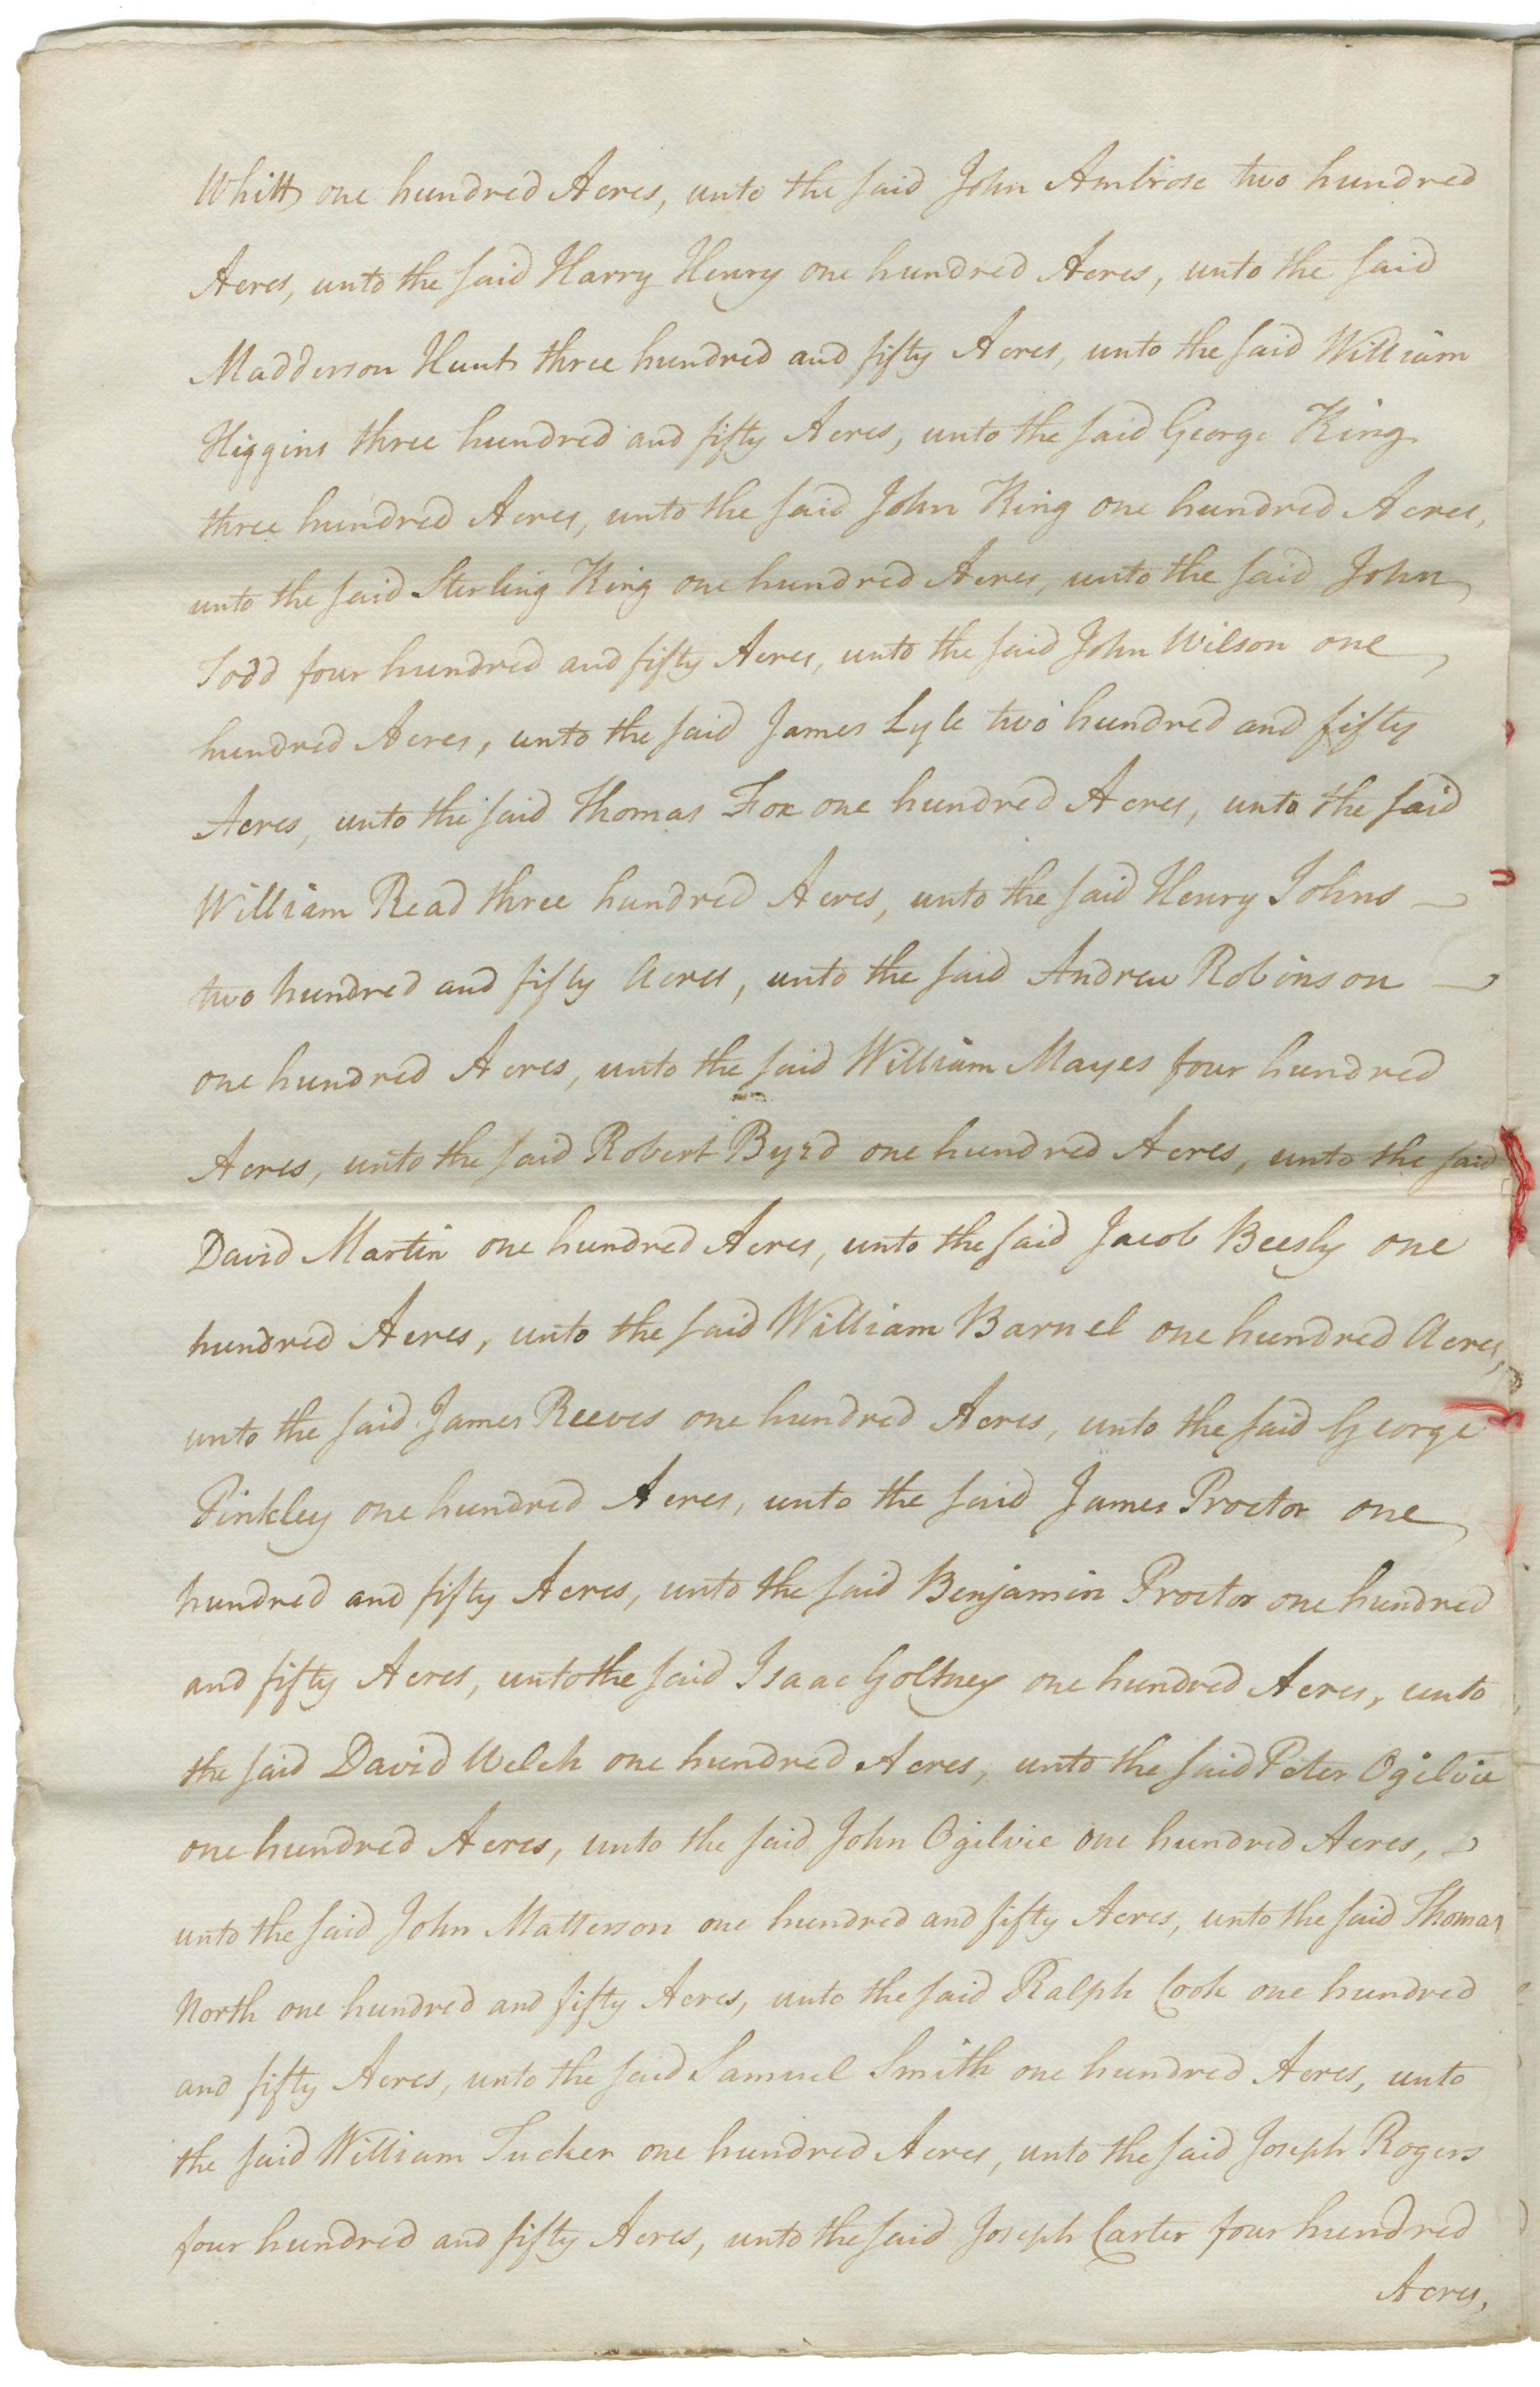 Whitt one hundred Acres, unto the said John Ambrose two hundred
Acres, unto the said Harry Henry one hundred Acres, unto the said
Madderson Hunt three hundred and fifty Acres, unto the said William
Higgins three hundred and fifty Acres, unto the said George King
three hundred Acres, unto the said John King one hundred Acres,
unto the said Sterling King one hundred Acres, unto the said John
Todd four hundred and fifty Acres, unto the said John Wilson one
hundred Acres, unto the said James Lyle two hundred and fifty
Acres, unto the said Thomas Fox one hundred Acres, unto the said
William Read three hundred Acres, unto the said Henry Johns
two hundred and fifty Acres, unto the said Andrew Robinson
one hundred Acres, unto the said William Mayes four hundred
Acres, unto the said Robert Byrd one hundred Acres, unto the said
David Martin one hundred Acres, unto the said Jacob Beesly one
hundred Acres, unto the said William Barnel one hundred Acres,
unto the said James Reeves one hundred Acres, unto the said George
Pinkley one hundred Acres, unto the said James Proctor one
hundred and fifty Acres, unto the said Benjamin Proctor one hundred
and fifty Acres, unto the said Isaac Goltney one hundred Acres, unto
the said David Welch one hundred Acres, unto the said Peter Ogilvie
one hundred Acres, unto the said John Ogilvie one hundred Acres,
unto the said John Matterson one hundred and fifty Acres, unto the said Thomas
North one hundred and fifty Acres, unto the said Ralph Cook one hundred
and fifty Acres, unto the said Samuel Smith one hundred Acres, unto
the said William Tucker one hundred Acres, unto the said Joseph Rogers
four hundred and fifty Acres, unto the said Joseph Carter four hundred
Acres,